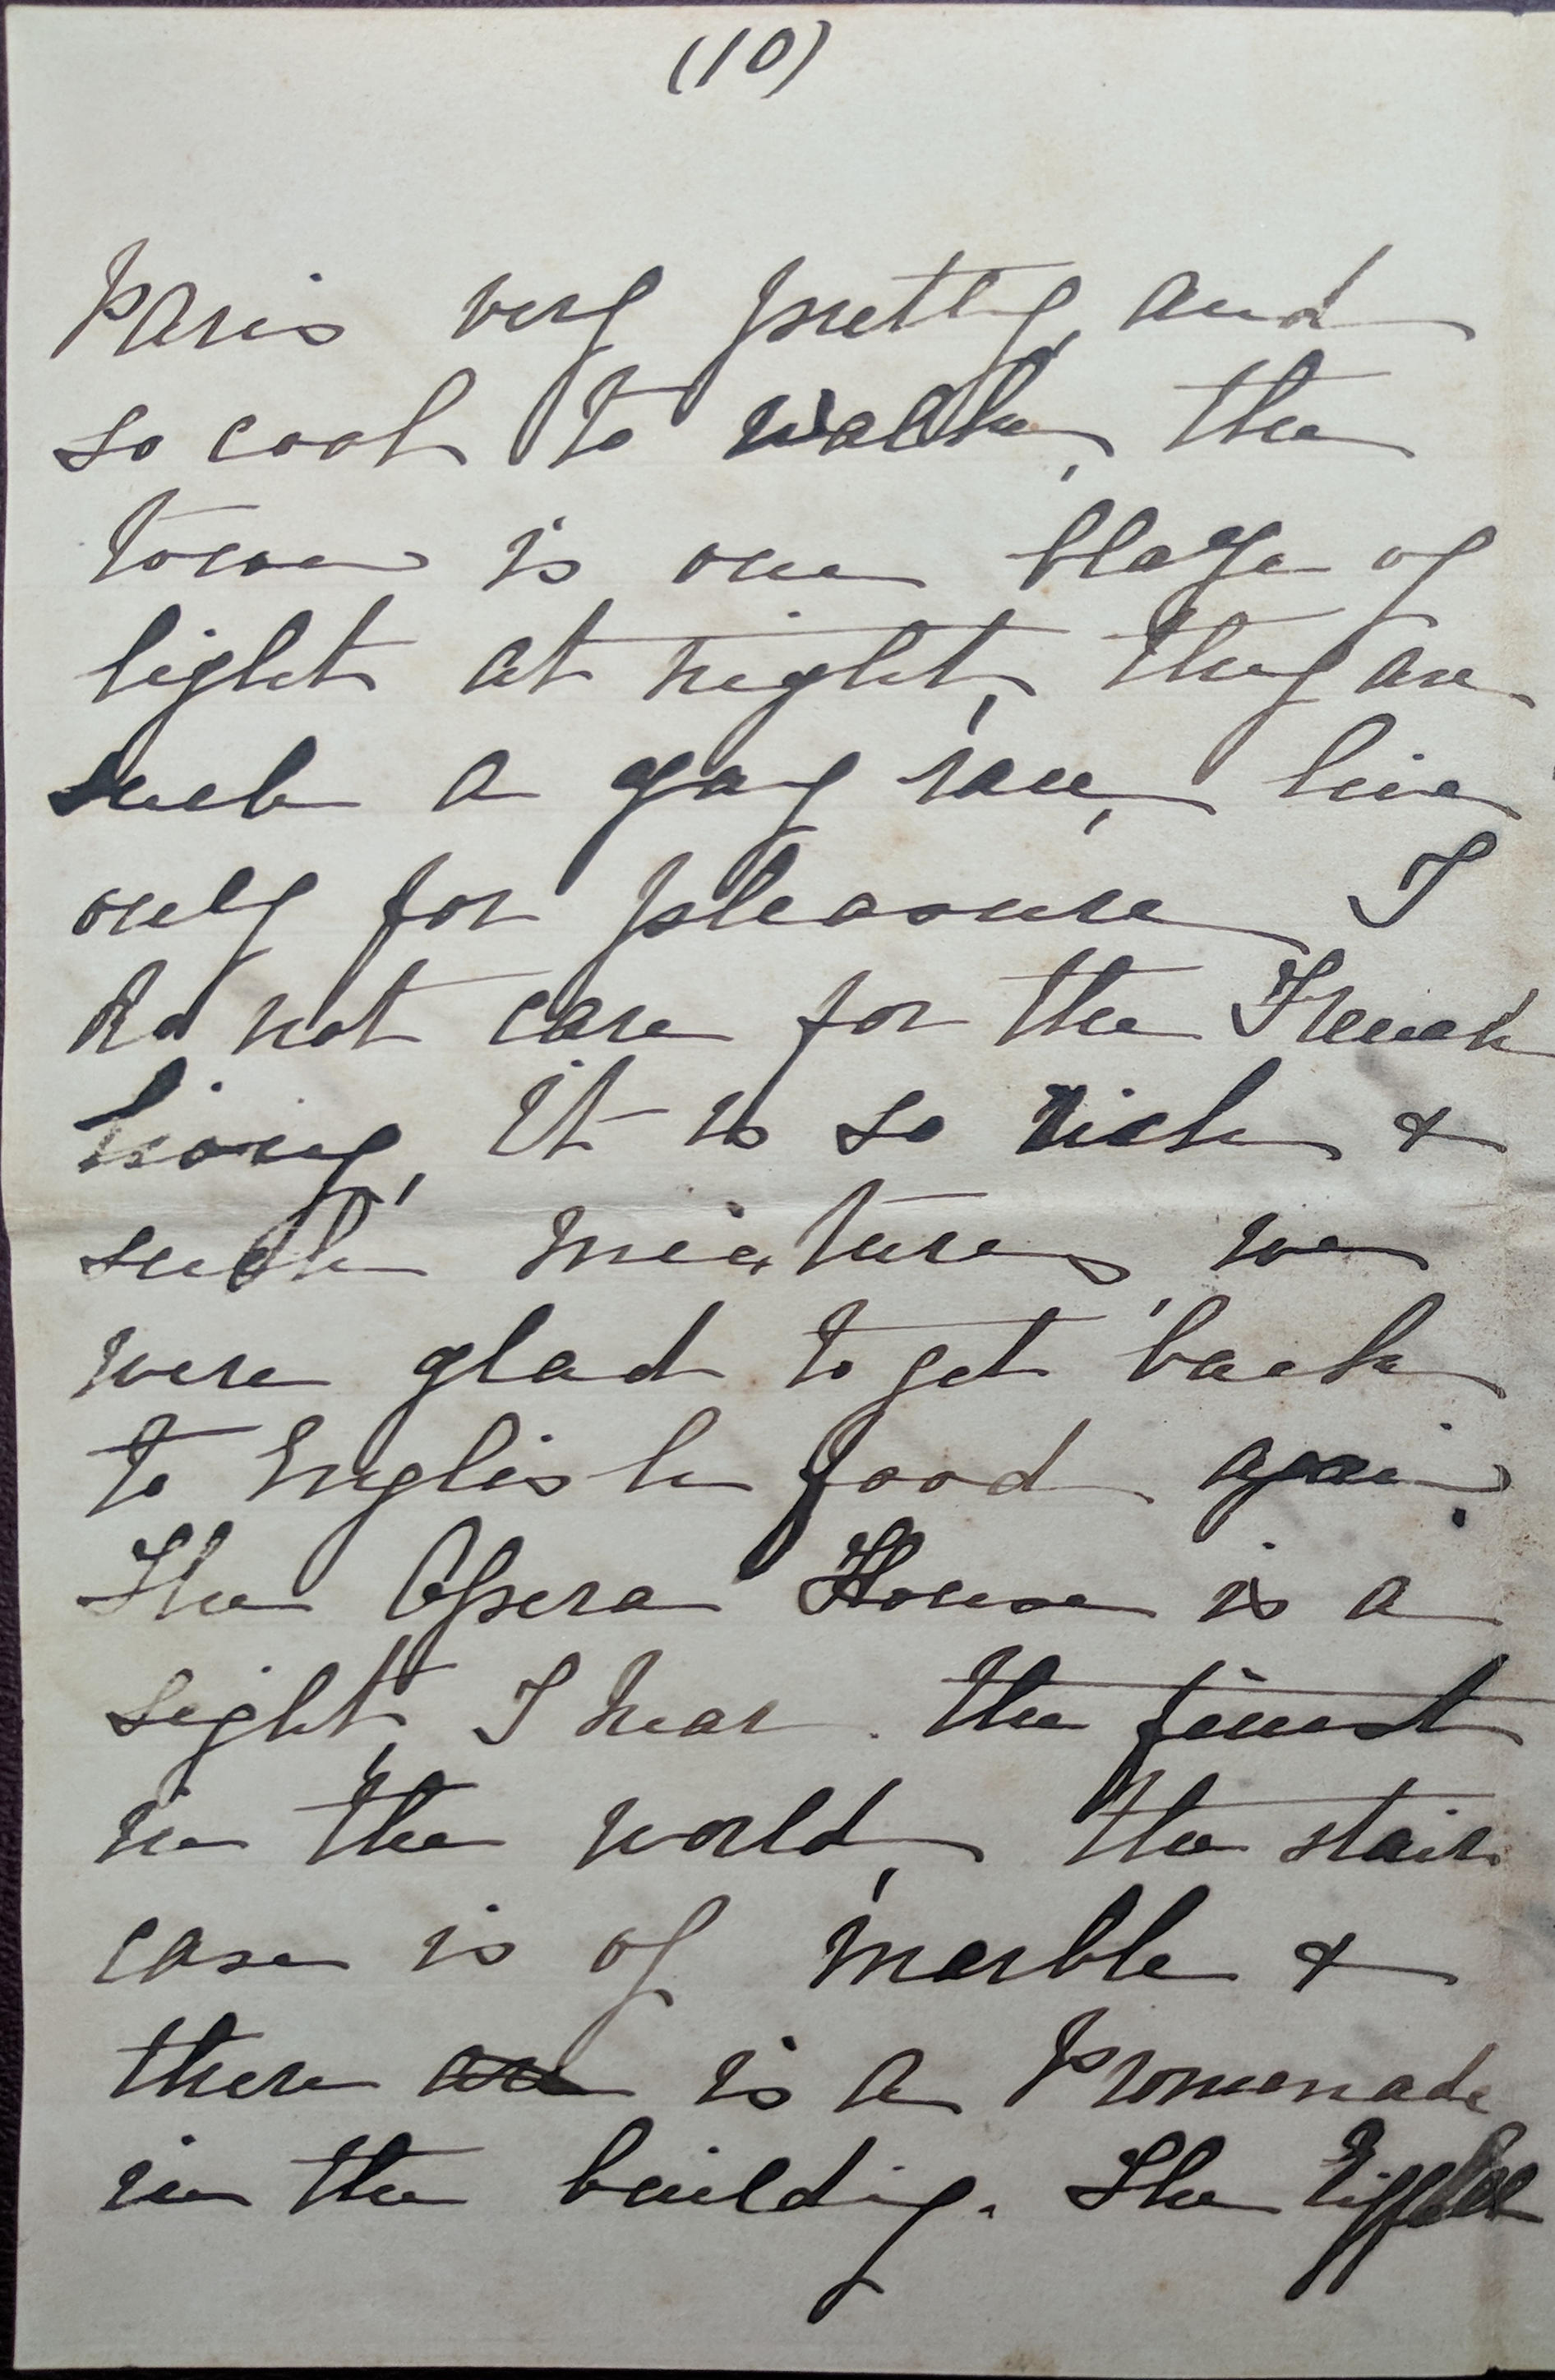 (10)
Paris very pretty, and
so cool to walk, the
town is one blaze of
light at night, they are
such a gay race, live
only for pleasure I
do not care for the French
living, it is so rich &
such mixtures, we
were glad to get back
to English food again.
The Opera House is a
sight, I hear. the finest
in the world, the stair
case is of marble &
there are is a Promenade
in the building. The Eiffel